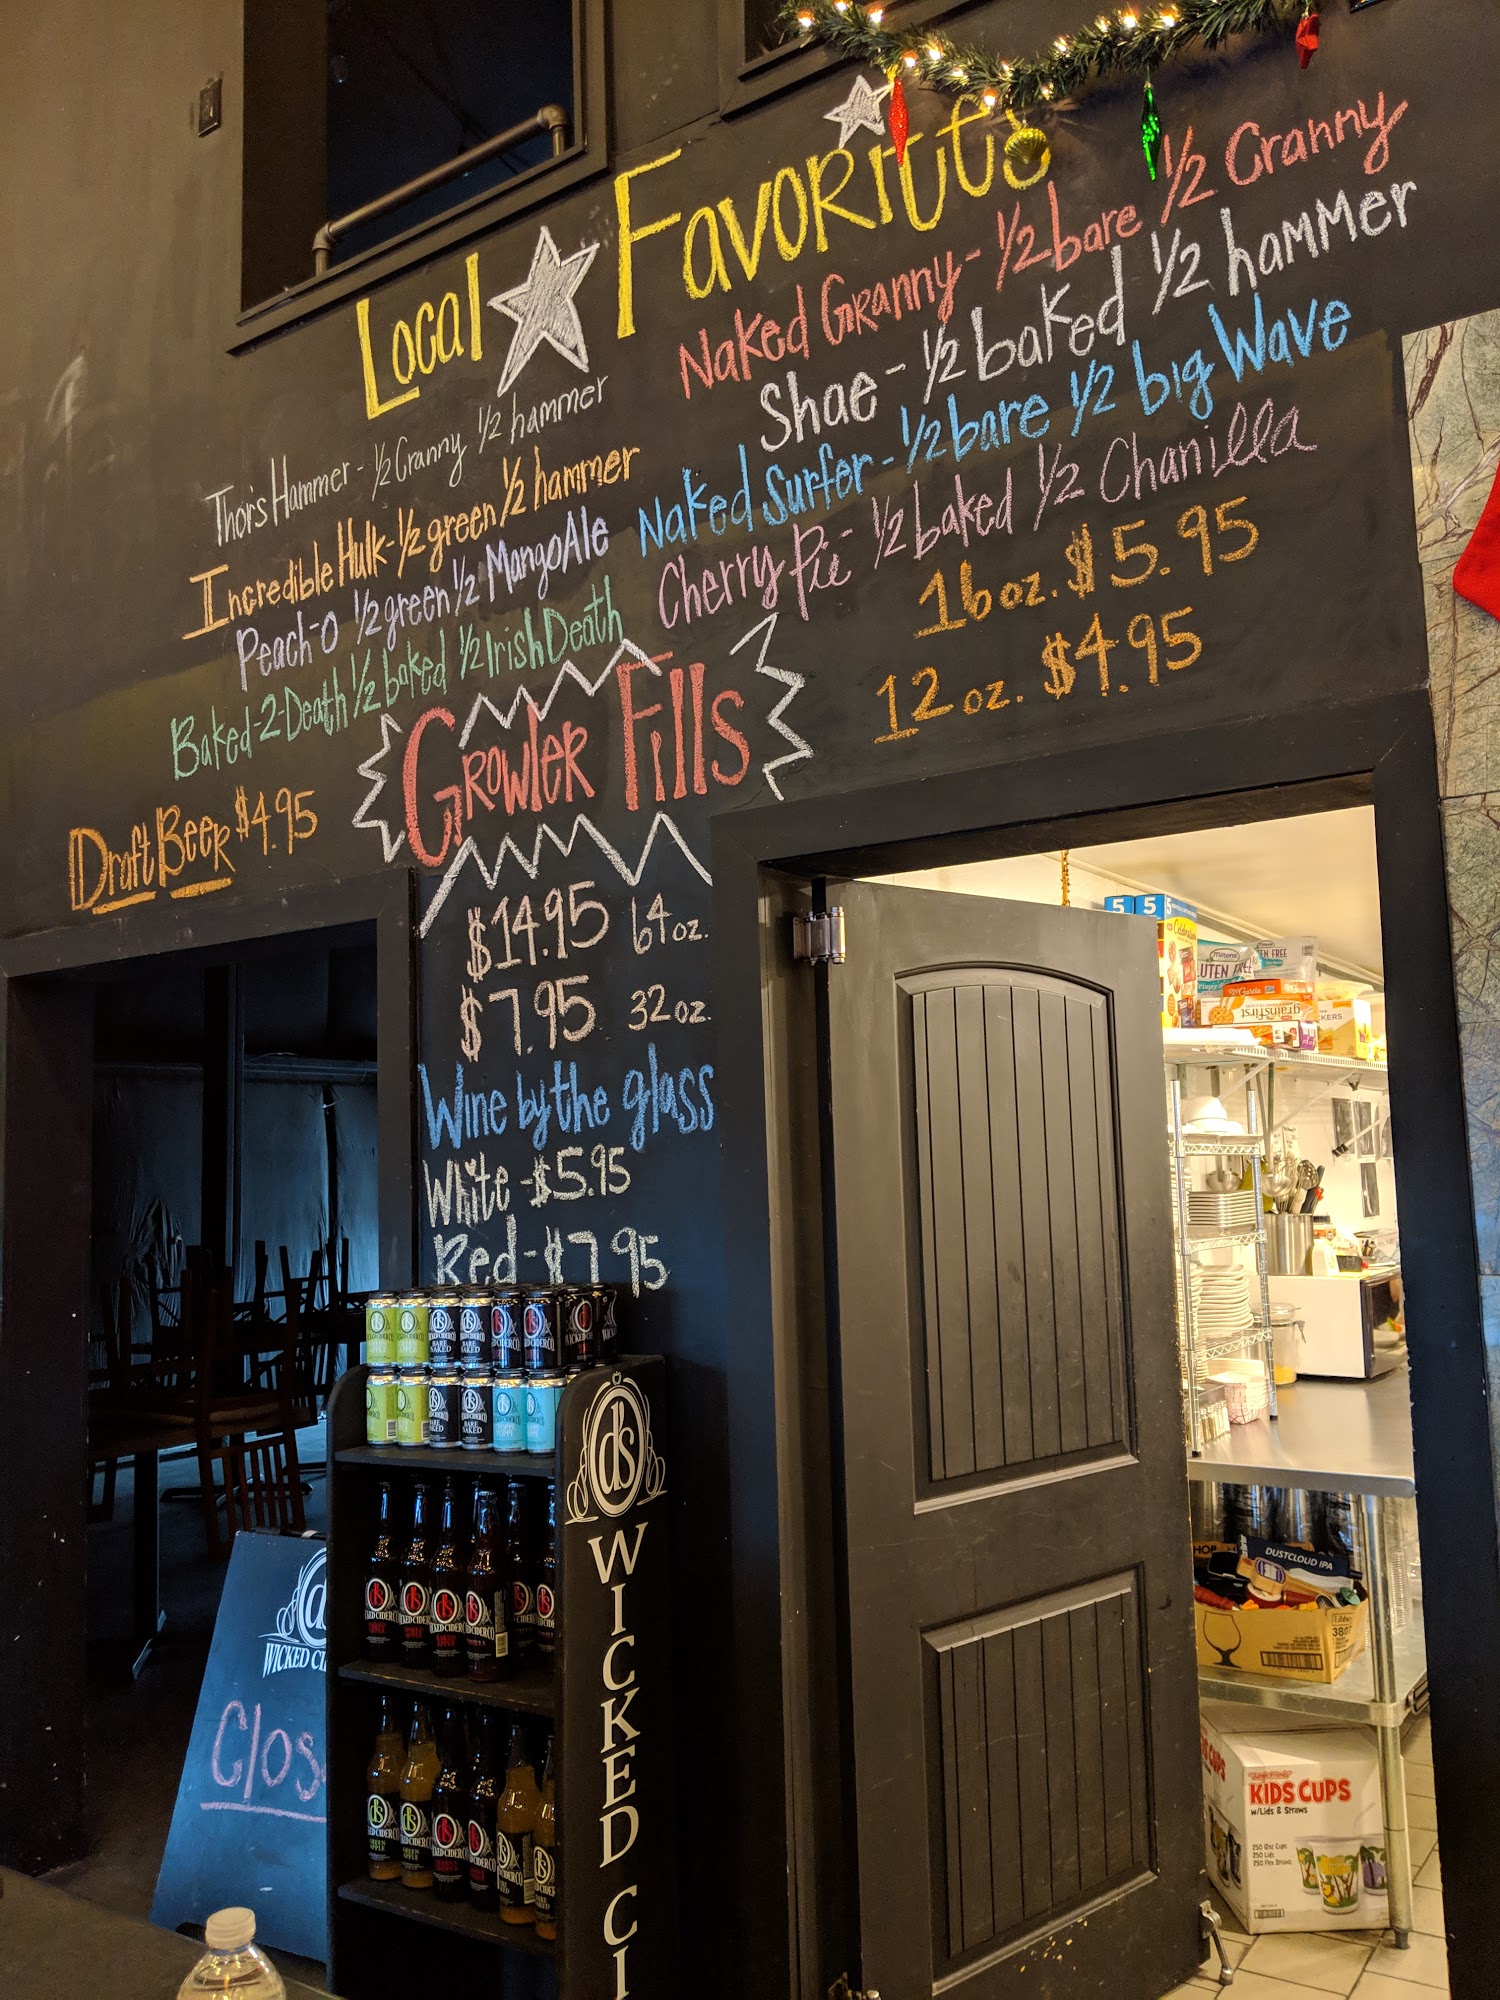 Local Favorites
Thor's Hammer - 1/2 Cranny 1/2 hammer
Incredible Hulk - 1/2 green 1/2 hammer
Peach-O 1/2 green 1/2 Mango Ale
Baked-2-Death 1/2 baked 1/2 Irish Death
Naked Granny - 1/2 bare 1/2 Cranny
Shae - 1/2 baked 1/2 hammer
Naked Surfer - 1/2 bare 1/2 big Wave
Cherry Pie - 1/2 baked 1/2 Chanilla
16 oz. $5.95
12 oz. $4.95
Draft Beer $4.95
Growler Fills
$14.95 64 oz.
$7.95 32 oz.
Wine by the glass
White - $5.95
Red - $7.95
d's
WICKED CI
d's
WICKED CI
Clos
BARE NAKED
GREEN APPLE
5 5
GLUTEN FREE
grainsfirst
DUSTCLOUD IPA
Libbey
3807
KIDS CUPS
w/Lids & Straws
250 Lids